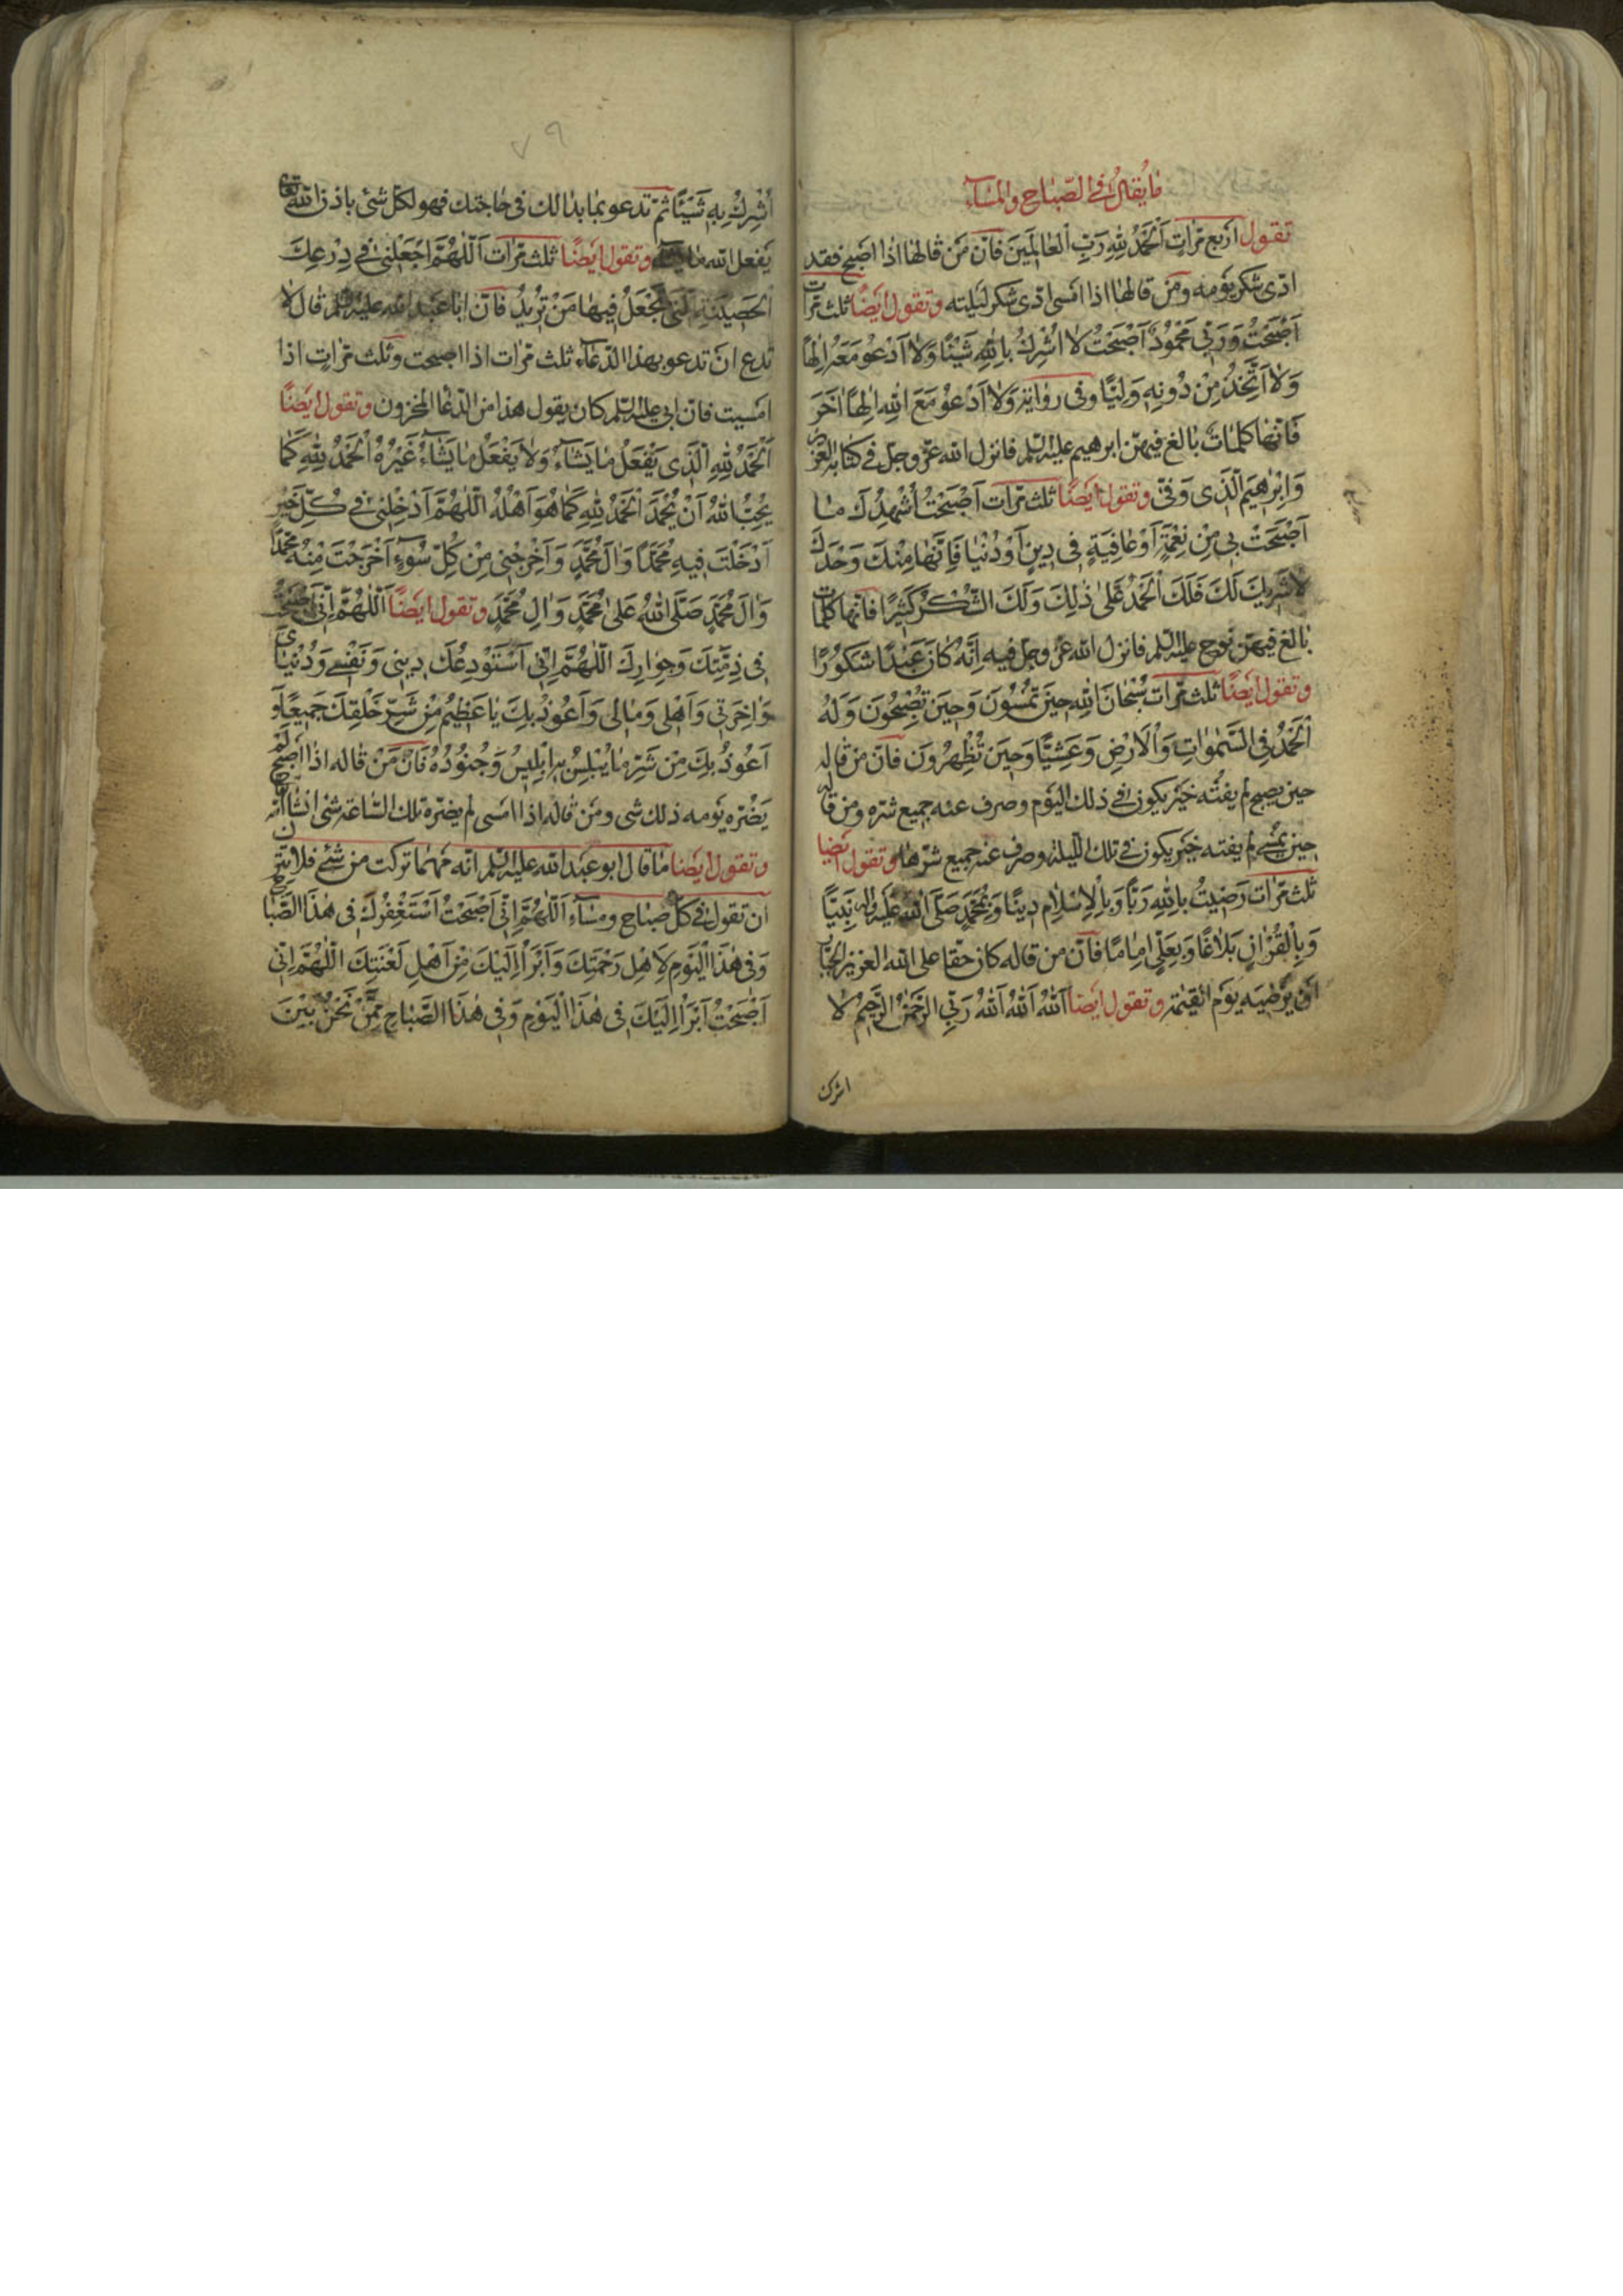 مٰا يُقٰالُ فِى الصَّبٰاحِ وَالمَسٰآءِ
تقول اَرْبع مَرّاتٍ اَلْحَمْدُ لِلّٰهِ رَبِّ الْعٰالَمينَ فَاِنّ مَن قٰالهٰا اذٰا اَصْبح فقد
ادّى شكر يَومه ومَن قالهٰا اذا امْسى ادّى شكر لَيلته وتقول ايَضًا ثلث مَرّات
اَصْبَحْتُ وَرَبّى مَحْمُودٌ اَصْبَحْتُ لٰا اُشْرِكُ بِاللّٰهِ شَيْئًا وَلٰا اَدْعُو مَعَهُ اِلٰهًا
وَلٰا اَتَّخِذُ مِنْ دُونِهٖ وَلِيًّا وفى روٰاية وَلٰا اَدْعُو مَعَ اللّٰهِ اِلٰهًا اٰخَرَ
فَانّهٰا كلمٰاتٌ بٰالغ فيهنّ ابرهيم عليه السّلم فانزل اللّه عزّ وجلّ فى كتابه العزيز
وَاِبْرٰهيمَ الَّذى وَفّىٰ وتقول ايَضًا ثلث مَرّات اَصْبَحْتُ اُشْهِدُكَ مٰا
اَصْبَحَتْ بى مِنْ نِعْمَةٍ اَوْ عٰافِيَةٍ فى دينٍ اَوْ دُنْيٰا فَاِنَّهٰا مِنْكَ وَحْدَكَ
لٰا شَريكَ لَكَ فَلَكَ الْحَمْدُ عَلىٰ ذٰلِكَ وَلَكَ الشُّكْرُ كَثيرًا فانّها كلمات
بٰالغ فيهنّ نوح عليه السّلم فانزل اللّه عزّ وجلّ فيه اِنَّهُ كٰانَ عَبْدًا شَكُورًا
وتقول ايَضًا ثلث مَرّات سُبْحٰانَ اللّٰهِ حينَ تُمْسُونَ وَحينَ تُصْبِحُونَ وَلَهُ
الْحَمْدُ فِى السَّمٰوٰاتِ وَالْاَرْضِ وَعَشِيًّا وَحينَ تُظْهِرُونَ فانّ من قاله
حين يصبح لم يفتْه خَير يكون فى ذلك اليَوم وصرف عنه جميع شرّه ومن قاله
حين يمْسى لم يفته خَير يكون فى تلك اللّيلة وصرف عنه جميع شرّهٰا وتقول ايَضًا
ثلث مَرّات رَضيتُ بِاللّٰهِ رَبًّا وَبِالْاِسْلٰامِ دينًا وَبِمُحَمَّدٍ صَلَّى اللّٰهُ عَلَيْهِ وَاٰلِهِ نَبِيًّا
وَبِالْقُرْاٰنِ بَلٰاغًا وَبِعَلِىٍّ اِمٰامًا فانّ من قاله كان حقّا على اللّه العزيز الجبّار
ان يُرْضيَه يَوم القيٰمة وتقول ايَضًا اَللّٰهُ اَللّٰهُ اَللّٰهُ رَبِّىَ الرَّحْمٰنُ الرَّحيمُ لٰا
اشرك
٧٩
اُشْرِكُ بِهِ شَيْئًا ثمّ تدعو بمٰا بدٰا لك فى حٰاجتك فهو لكلّ شئ باذن اللّه تعٰالى
يَفعل اللّه مٰا يشاء وتقول ايَضًا ثلث مَرّات اَللّٰهُمَّ اجْعَلْنى فى دِرْعِكَ
الْحَصينَةِ الَّتى تَجْعَلُ فيهٰا مَنْ تُريدُ فانّ ابا عَبد اللّه عليه السّلم قٰال لا
تدع ان تدعو بهذا الدّعٰاء ثلث مَرّات اذا اصبحت وثلث مَرّاتٍ اذا
امْسيت فانّ ابى عليه السّلم كان يقول هذا من الدّعٰا المخزون وتقول ايَضًا
اَلْحَمْدُ لِلّٰهِ الَّذى يَفْعَلُ مٰا يَشٰآءُ وَلٰا يَفْعَلُ مٰا يَشٰآءُ غَيْرُهُ الْحَمْدُ لِلّٰهِ كَمٰا
يُحِبُّ اللّٰهُ اَنْ يُحْمَدَ اَلْحَمْدُ لِلّٰهِ كَمٰا هُوَ اَهْلُهُ اَللّٰهُمَّ اَدْخِلْنى فى كُلِّ خَيْرٍ
اَدْخَلْتَ فيهِ مُحَمَّدًا وَاٰلَ مُحَمَّدٍ وَاَخْرِجْنى مِنْ كُلِّ سُوٓءٍ اَخْرَجْتَ مِنْهُ مُحَمَّدًا
وَاٰلَ مُحَمَّدٍ صَلَّى اللّٰهُ عَلىٰ مُحَمَّدٍ وَاٰلِ مُحَمَّدٍ وتقول ايَضًا اَللّٰهُمَّ اِنّى اَصْبَحْتُ
فى ذِمَّتِكَ وَجِوٰارِكَ اَللّٰهُمَّ اِنّى اَسْتَوْدِعُكَ دينى وَنَفْسى وَدُنْيٰاىَ
وَاٰخِرَتى وَاَهْلى وَمٰالى وَاَعُوذُ بِكَ يٰا عَظيمُ مِنْ شَرِّ خَلْقِكَ جَميعًا وَ
اَعُوذُ بِكَ مِنْ شَرِّ مٰا يُبْلِسُ بِهِ اِبْليسُ وَجُنُودُهُ فَانّ مَنْ قٰاله اذٰا اَصْبح لم
يَضْرّه يَومه ذلك شى ومَن قاله اذا امَسى لم يضرّه تلك السّاعة شئ انشٰا اللّه
وتقول ايضًا مٰا قال ابو عَبد اللّه عليه السّلم انّه مَهمٰا تركت من شئ فلا تترك
ان تقول فى كلّ صبٰاح ومسٰآء اَللّٰهُمَّ اِنّى اَصْبَحْتُ اَسْتَغْفِرُكَ فى هٰذَا الصَّبٰاحِ
وَفى هٰذَا الْيَوْمِ لِاَهْلِ رَحْمَتِكَ وَاَبْرَأُ اِلَيْكَ مِنْ اَهْلِ لَعْنَتِكَ اَللّٰهُمَّ اِنّى
اَصْبَحْتُ اَبْرَأُ اِلَيْكَ فى هٰذَا الْيَوْمِ وَفى هٰذَا الصَّبٰاحِ مِمَّنْ نَحْنُ بَيْنَ